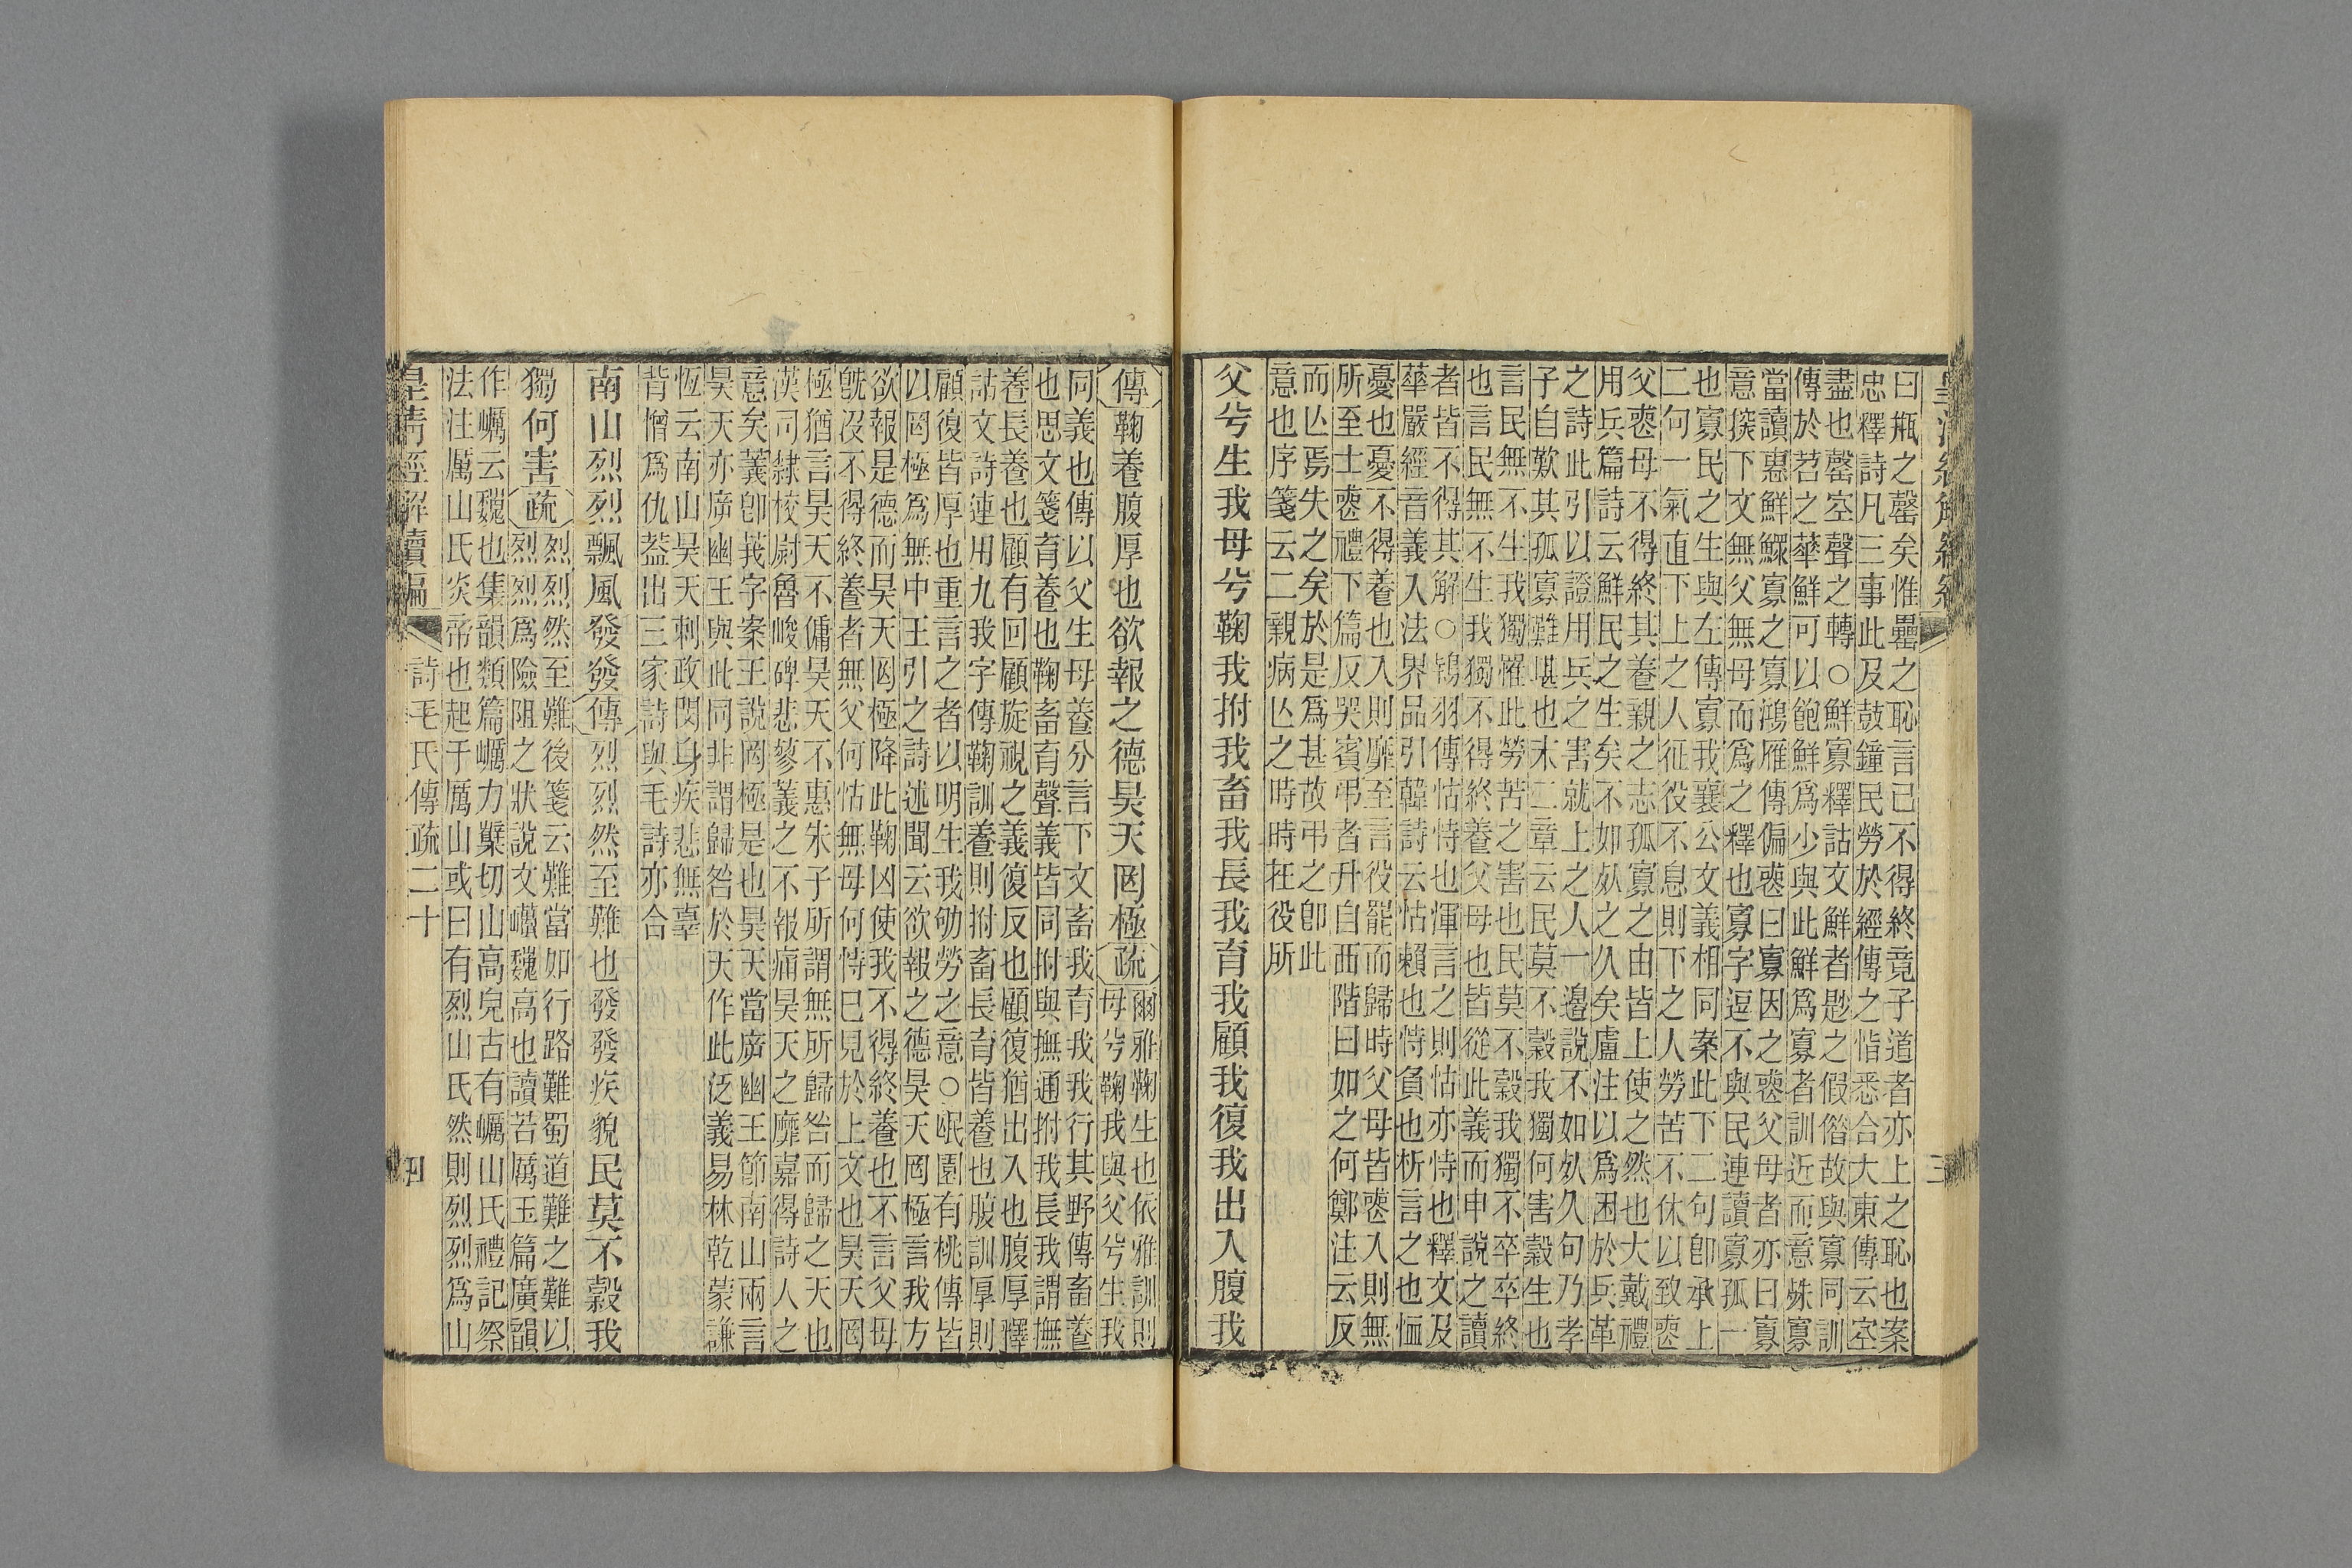 皇清經解續編
三
曰瓶之罄矣惟罍之恥言已不得終竟子道者亦上之恥也案
忠釋詩凡三事此及鼓鐘民勞於經傳之㥶悉合大東傳云空
盡也罄空聲之轉○鮮寡釋詁文鮮者尟之假偺故與寡同訓
傳於苕之華鮮可以飽鮮爲少與此鮮爲寡者訓近而意殊寡
當讀惠鮮鰥寡之寡鴻雁傳偏喪曰寡因之喪父母者亦曰寡
意探下文無父無母而爲之釋也寡字逗不與民連讀寡孤一
也寡民之生與左傳寡我襄公文義相同案此下二句卽承上
二句一氣直下上之人征役不息則下之人勞苦不休以致喪
父喪母不得終其養親之志孤寡之由皆上使之然也大戴禮
用兵篇詩云鮮民之生矣不如㱥之久矣盧注以爲困於兵革
之詩此引以證用兵之害就上之人一邉說不如㱥久句乃孝
子自歎其孤寡難堪也末二章云民莫不穀我獨何害穀生也
言民無不生我獨罹此勞苦之害也民莫不穀我獨不卒卒終
也言民無不生我獨不得終養父母也皆從此義而申說之讀
者皆不得其解○鴇羽傳怙恃也渾言之則怙亦恃也釋文及
華嚴經音義入法界品引韓詩云怙賴也恃負也析言之也恤
憂也憂不得養也入則靡至言役罷而歸時父母皆喪入則無
所至士喪禮下篇反哭賓弔者升自西階曰如之何鄭注云反
而亾焉失之矣於是爲甚故弔之卽此
意也序箋云二親病亾之時時在役所
父兮生我母兮鞠我拊我畜我長我育我顧我復我出入腹我
傳鞠養腹厚也欲報之德昊天罔極疏爾雅鞠生也依雅訓則
母兮鞠我與父兮生我
同義也傳以父生母養分言下文畜我育我我行其野傳畜養
也思文箋育養也鞠畜育聲義皆同拊與撫通拊我長我謂撫
養長養也顧有回顧旋視之義復反也顧復猶出入也腹厚釋
詁文詩連用九我字傳鞠訓養則拊畜長育皆養也腹訓厚則
顧復皆厚也重言之者以明生我劬勞之意○㟭園有桃傳皆
以罔極爲無中王引之詩述聞云欲報之德昊天罔極言我方
欲報是德而昊天罔極降此鞠凶使我不得終養也不言父母
旣沒不得終養者無父何怙無母何恃巳見於上文也昊天罔
極猶言昊天不傭昊天不惠朱子所謂無所歸咎而歸之天也
漢司隸校尉魯峻碑悲蓼義之不報痛昊天之靡嘉得詩人之
意矣義卽莪字案王說罔極是也昊天當廣幽王節南山兩言
昊天亦廣幽王與此同非謂歸咎於天作此泛義易林乾蒙謙
恆云南山昊天刺政閔身疾悲無辜
背憎爲仇葢出三家詩與毛詩亦合
南山烈烈飄風發發傳烈烈然至難也發發疾貌民莫不穀我
獨何害疏烈烈然至難後箋云難當如行路難蜀道難之難以
烈烈爲險阻之狀說文巁巍高也讀若厲玉篇廣韻
作巁云巍也集韻類篇巁力櫱切山高皃古有巁山氏禮記祭
法注厲山氏炎帝也起于厲山或曰有烈山氏然則烈烈爲山
皇清經解續編 詩毛氏傳疏二十 四